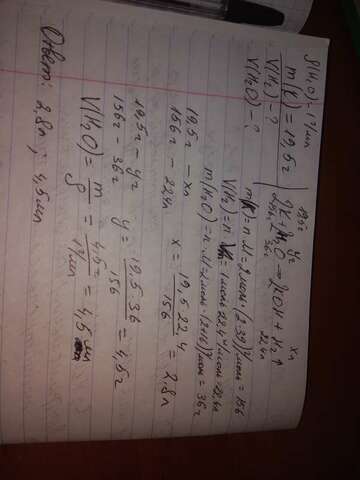 ρ(H₂O) = 1 г/мл
m(K) = 19,5 г
V(H₂) - ?
V(H₂O) - ?
19,5г yг xл
2K + 2H₂O → 2KOH + H₂↑
2моль 36г 22,4л
m(K) = n·M = 2моль · (2·39) г/моль = 156
V(H₂) = n · Vm = 1моль · 22,4 л/моль = 22,4л
m(H₂O) = n·M = 2моль · (2+16) г/моль = 36г
19,5г - xл
156г - 22,4л x = 19,5·22,4 / 156 = 2,8л
19,5г - yг
156г - 36г y = 19,5·36 / 156 = 4,5г
V(H₂O) = m / ρ = 4,5г / 1 г/мл = 4,5 мл
Ответ: 2,8л ; 4,5мл